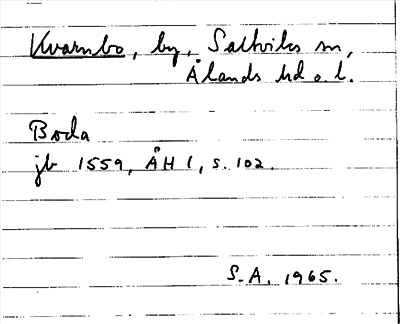 Kvarnbo, by, Saltviks sn,
Ålands hd o. l.
Boda
jb 1559, ÅH 1, s. 102.
S.A. 1965.